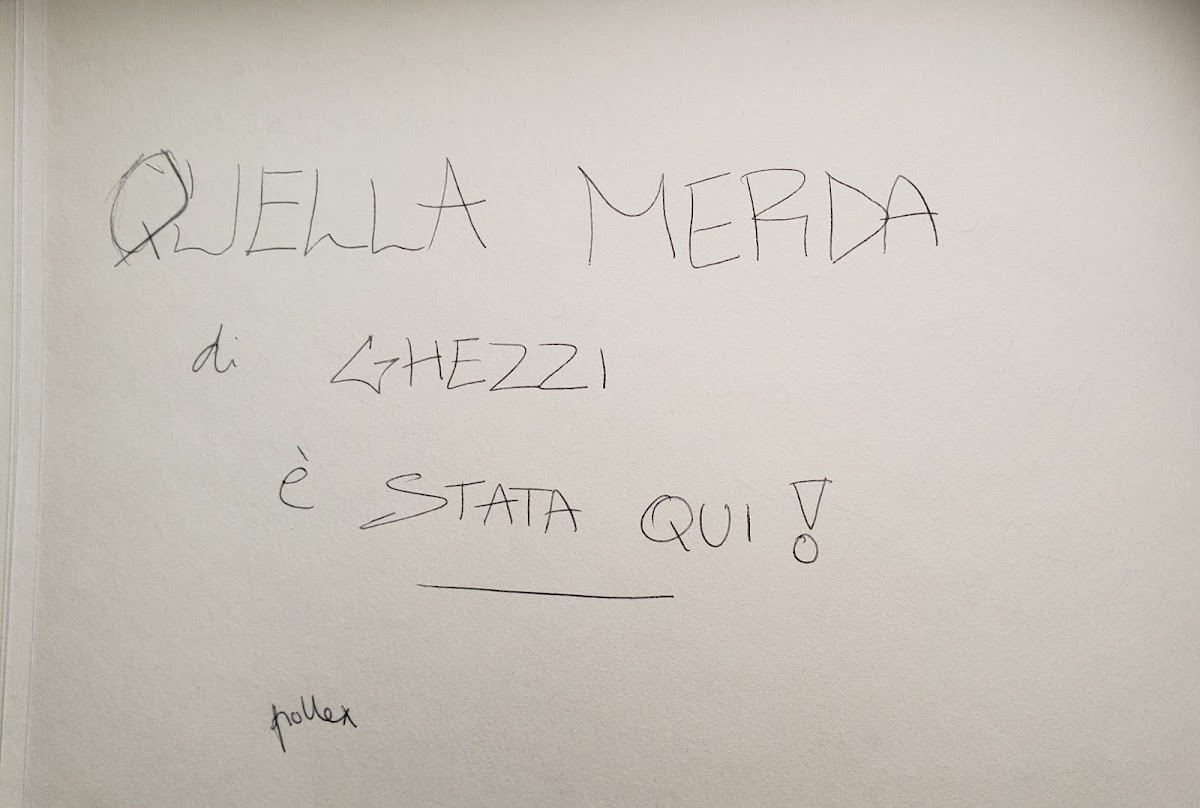 QUELLA MERDA
di GHEZZI
è STATA QUI!
pollex